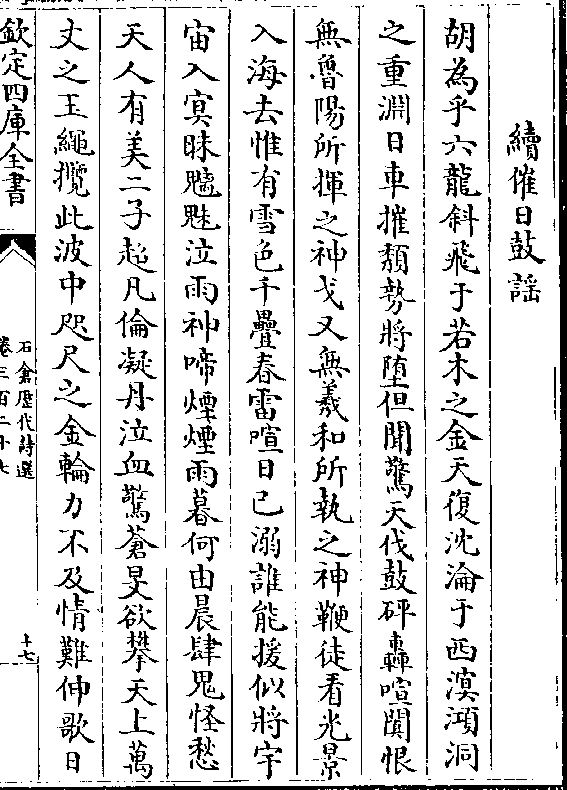 續催日鼓謡
胡為乎六龍斜飛于若木之金天復沈淪于西溟澒洞
之重淵日車摧頽勢將墮但聞驚天伐鼓砰轟喧闐恨
無魯陽所揮之神戈又無羲和所執之神鞭徒看光景
入海去惟有雪色千疊春雷喧日已溺誰能援似將宇
宙入冥昧魑魅泣雨神啼煙煙雨暮何由晨肆鬼怪愁
天人有美二子超凡倫凝丹泣血驚蒼旻欲攀天上萬
丈之玉繩攬此波中咫尺之金輪力不及情難伸歌日
欽定四庫全書
石倉歷代詩選
卷三百二十七
十七